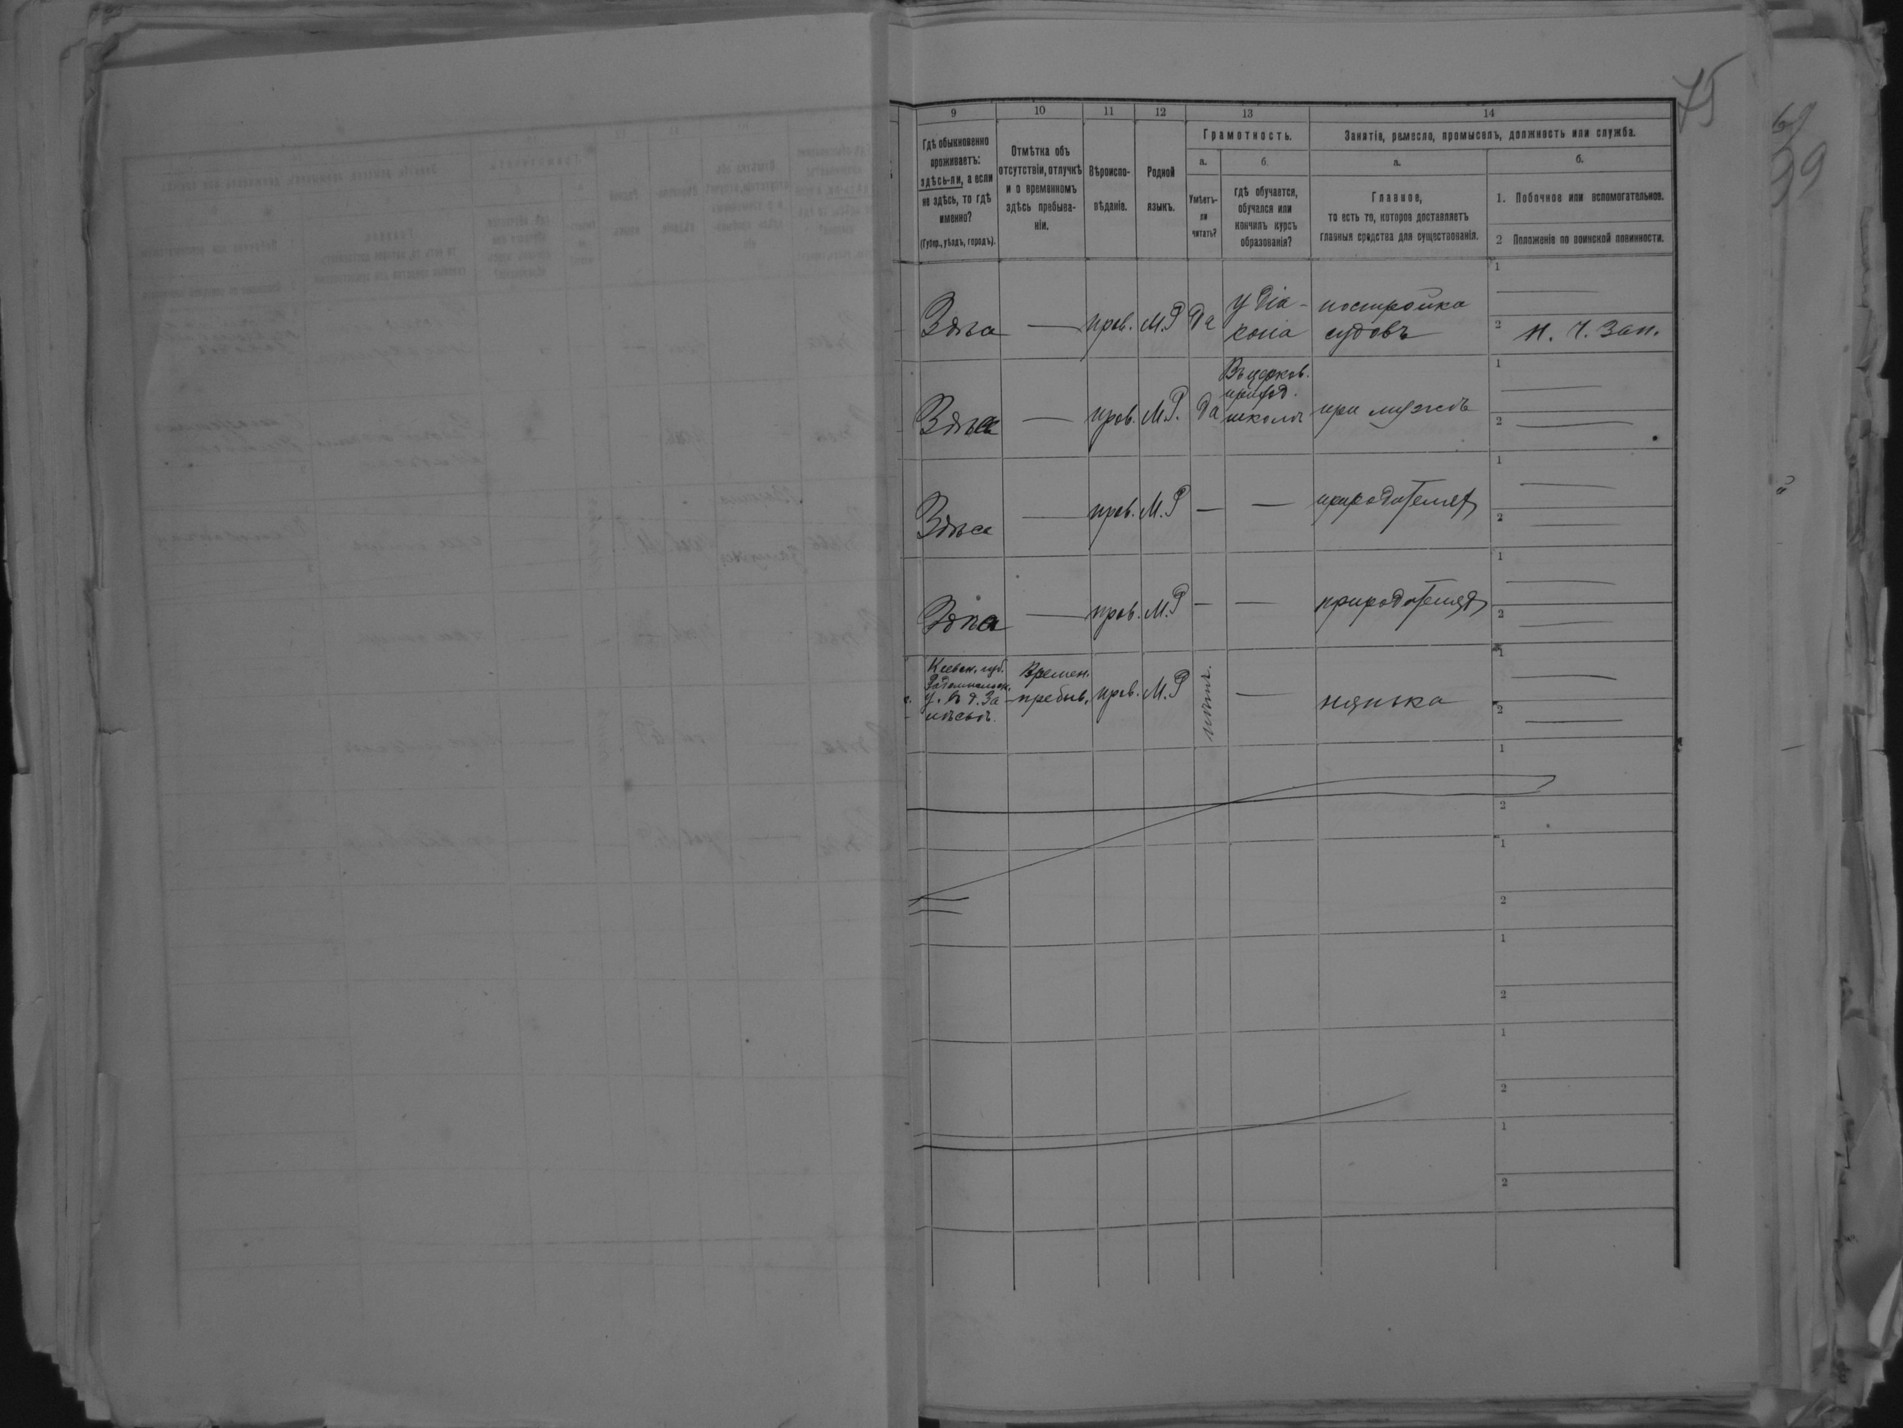 75
69
99
9 10 11 12 13 14
Гдѣ обыкновенно
проживаетъ:
здѣсь-ли, а если
не здѣсь, то гдѣ
именно?
(Губер., уѣздъ, городъ).
Отмѣтка объ
отсутствіи, отлучкѣ
и о временномъ
здѣсь пребыва-
ніи.
Вѣроиспо-
вѣданіе.
Родной
языкъ.
Грамотность.
а. б.
Умѣетъ-
ли
читать?
гдѣ обучается,
обучался или
кончилъ курсъ
образованія?
Занятія, ремесло, промыселъ, должность или служба.
а. б.
Главное,
то есть то, которое доставляетъ
главныя средства для существованія.
1. Побочное или вспомогательное.
2 Положеніе по воинской повинности.
1
Здѣсь — прав. М.Р да у діа-
кона
постройка
судовъ
2 н. ч. зап.
1
Здѣсь — прав. М.Р. да Въ церков.
приход.
школѣ
при мужѣ
2
1
Здѣсь — прав. М.Р — — при родителяхъ
2
1
Здѣсь — прав. М.Р — — при родителяхъ
2
1
Киевск. губ.
Радомысльск.
у. в д. За
лѣсьѣ.
Времен.
пребыв.
прав. М.Р нѣтъ — нянька
2
1
2
1
2
1
2
1
2
1
2